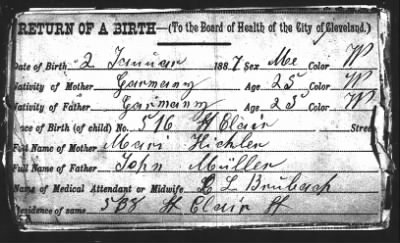 RETURN OF A BIRTH—(To the Board of Health of the City of Cleveland.)
Date of Birth 2 Januar 1887 Sex Me Color W
Nativity of Mother Garmany Age 25 Color W
Nativity of Father Garmany Age 25 Color W
Place of Birth (of child) No. 516 St Clair Street
Full Name of Mother Mari Hichler
Full Name of Father John Müller
Name of Medical Attendant or Midwife L L Brubach
Residence of same 538 St Clair St